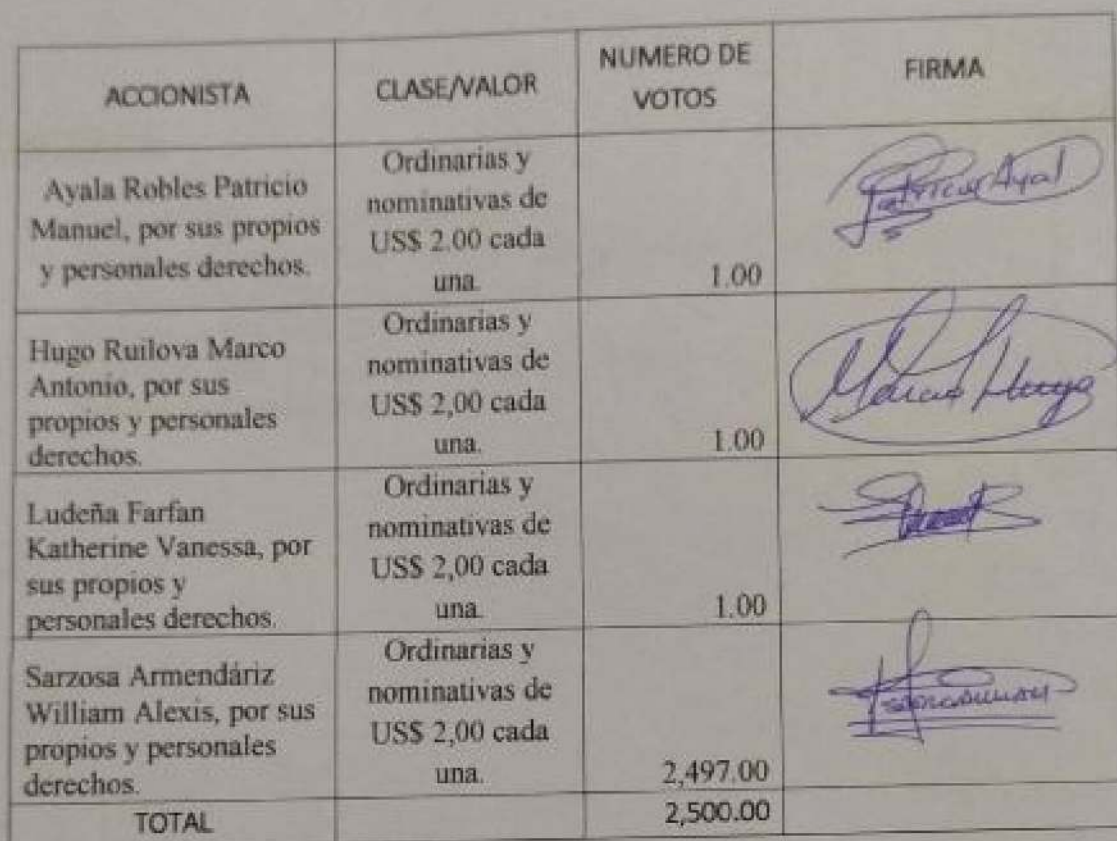 ACCIONISTA
CLASE/VALOR
NUMERO DE
VOTOS
FIRMA
Ayala Robles Patricio
Manuel, por sus propios
y personales derechos.
Ordinarias y
nominativas de
US$ 2.00 cada
una.
1.00
Patricio Ayal
Hugo Ruilova Marco
Antonio, por sus
propios y personales
derechos.
Ordinarias y
nominativas de
US$ 2,00 cada
una.
1.00
Marco Hugo
Ludeña Farfan
Katherine Vanessa, por
sus propios y
personales derechos.
Ordinarias y
nominativas de
US$ 2,00 cada
una.
1.00
Sarzosa Armendáriz
William Alexis, por sus
propios y personales
derechos.
Ordinarias y
nominativas de
US$ 2,00 cada
una.
2,497.00
TOTAL
2,500.00